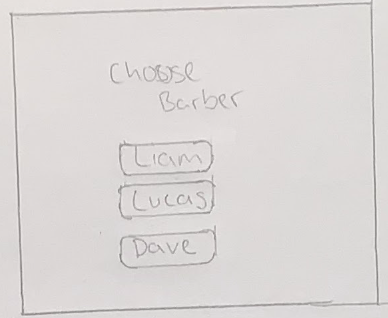 Choose
Barber
Liam
Lucas
Dave